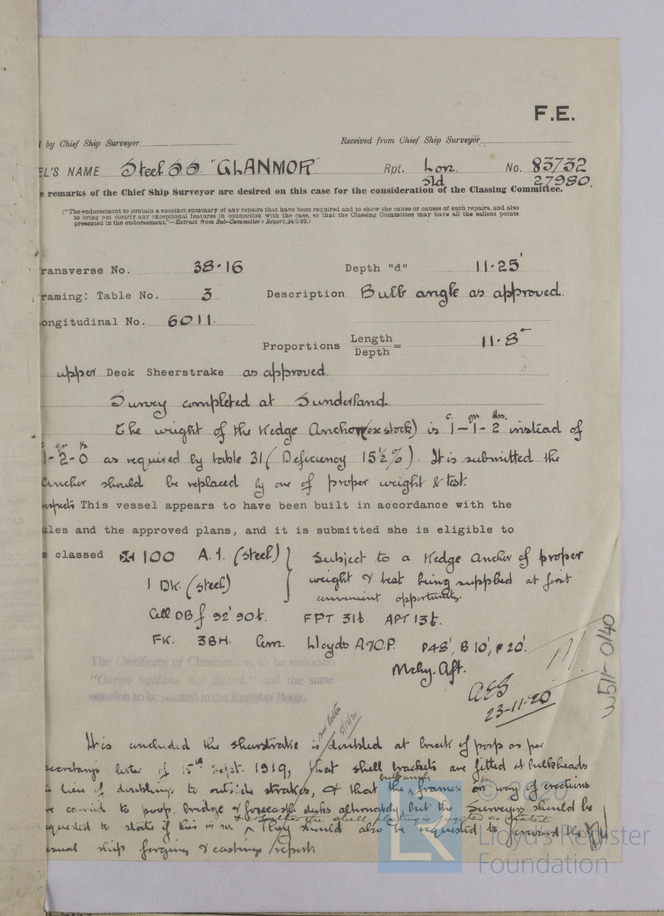 F.E.
by Chief Ship Surveyor Received from Chief Ship Surveyor
EL'S NAME Steel SS "GLANMOR" Rpt. Lon. No. 83732
Sld 27980.
e remarks of the Chief Ship Surveyor are desired on this case for the consideration of the Classing Committee.
("The endorsement to contain a succinct summary of any repairs that have been required and to show the cause or causes of such repairs, and also
to bring out clearly any exceptional features in connection with the case, so that the Classing Committee may have all the salient points
presented in the endorsement."—Extract from Sub-Committee's Report,
ransverse No. 38.16 Depth "d" 11.25'
raming: Table No. 3 Description Bulb angle as approved.
ongitudinal No. 6011.
Proportions Length
Depth = 11.8
upper Deck Sheerstrake as approved.
Survey completed at Sunderland.
c. qrs lbs.
The weight of the Kedge Anchor (ex stock) is 1-1-2 instead of
qrs lbs
1-2-0 as required by table 31 (Deficiency 15½%). It is submitted the
anchor should be replaced by one of proper weight & test.
This vessel appears to have been built in accordance with the
ules and the approved plans, and it is submitted she is eligible to
e classed ✠ 100 A.1. (steel) } Subject to a Kedge Anchor of proper
1 DK. (steel) weight & test being supplied at first
convenient opportunity.
Cell DB f 92' 90t. FPT 31t. APT 13t.
FK. 38H. Cem. Lloyds A&CP. P48', B10', F20'.
Mchy. Aft.
The Certificate of Classification to be endorsed
"Cargo battens not fitted," and the same
notation to be inserted in the Register Book.
23-11-20
W511-0140
It is concluded the sheerstrake is doubled at break of poop as per
see letter
secretary's letter of 15th Sept. 1919, that shell brackets are fitted at bulkheads
bulb angle
in lieu of doublings to outside strakes, & that the frames in way of erections
are carried to poop, bridge & forecastle decks alternately, but the Surveyors should be
& whether the shell plating is joggled as stated
requested to state if this is so. They should also be requested to forward the
usual ship forging & castings report.
© 2021
LR
Lloyd's Register
Foundation